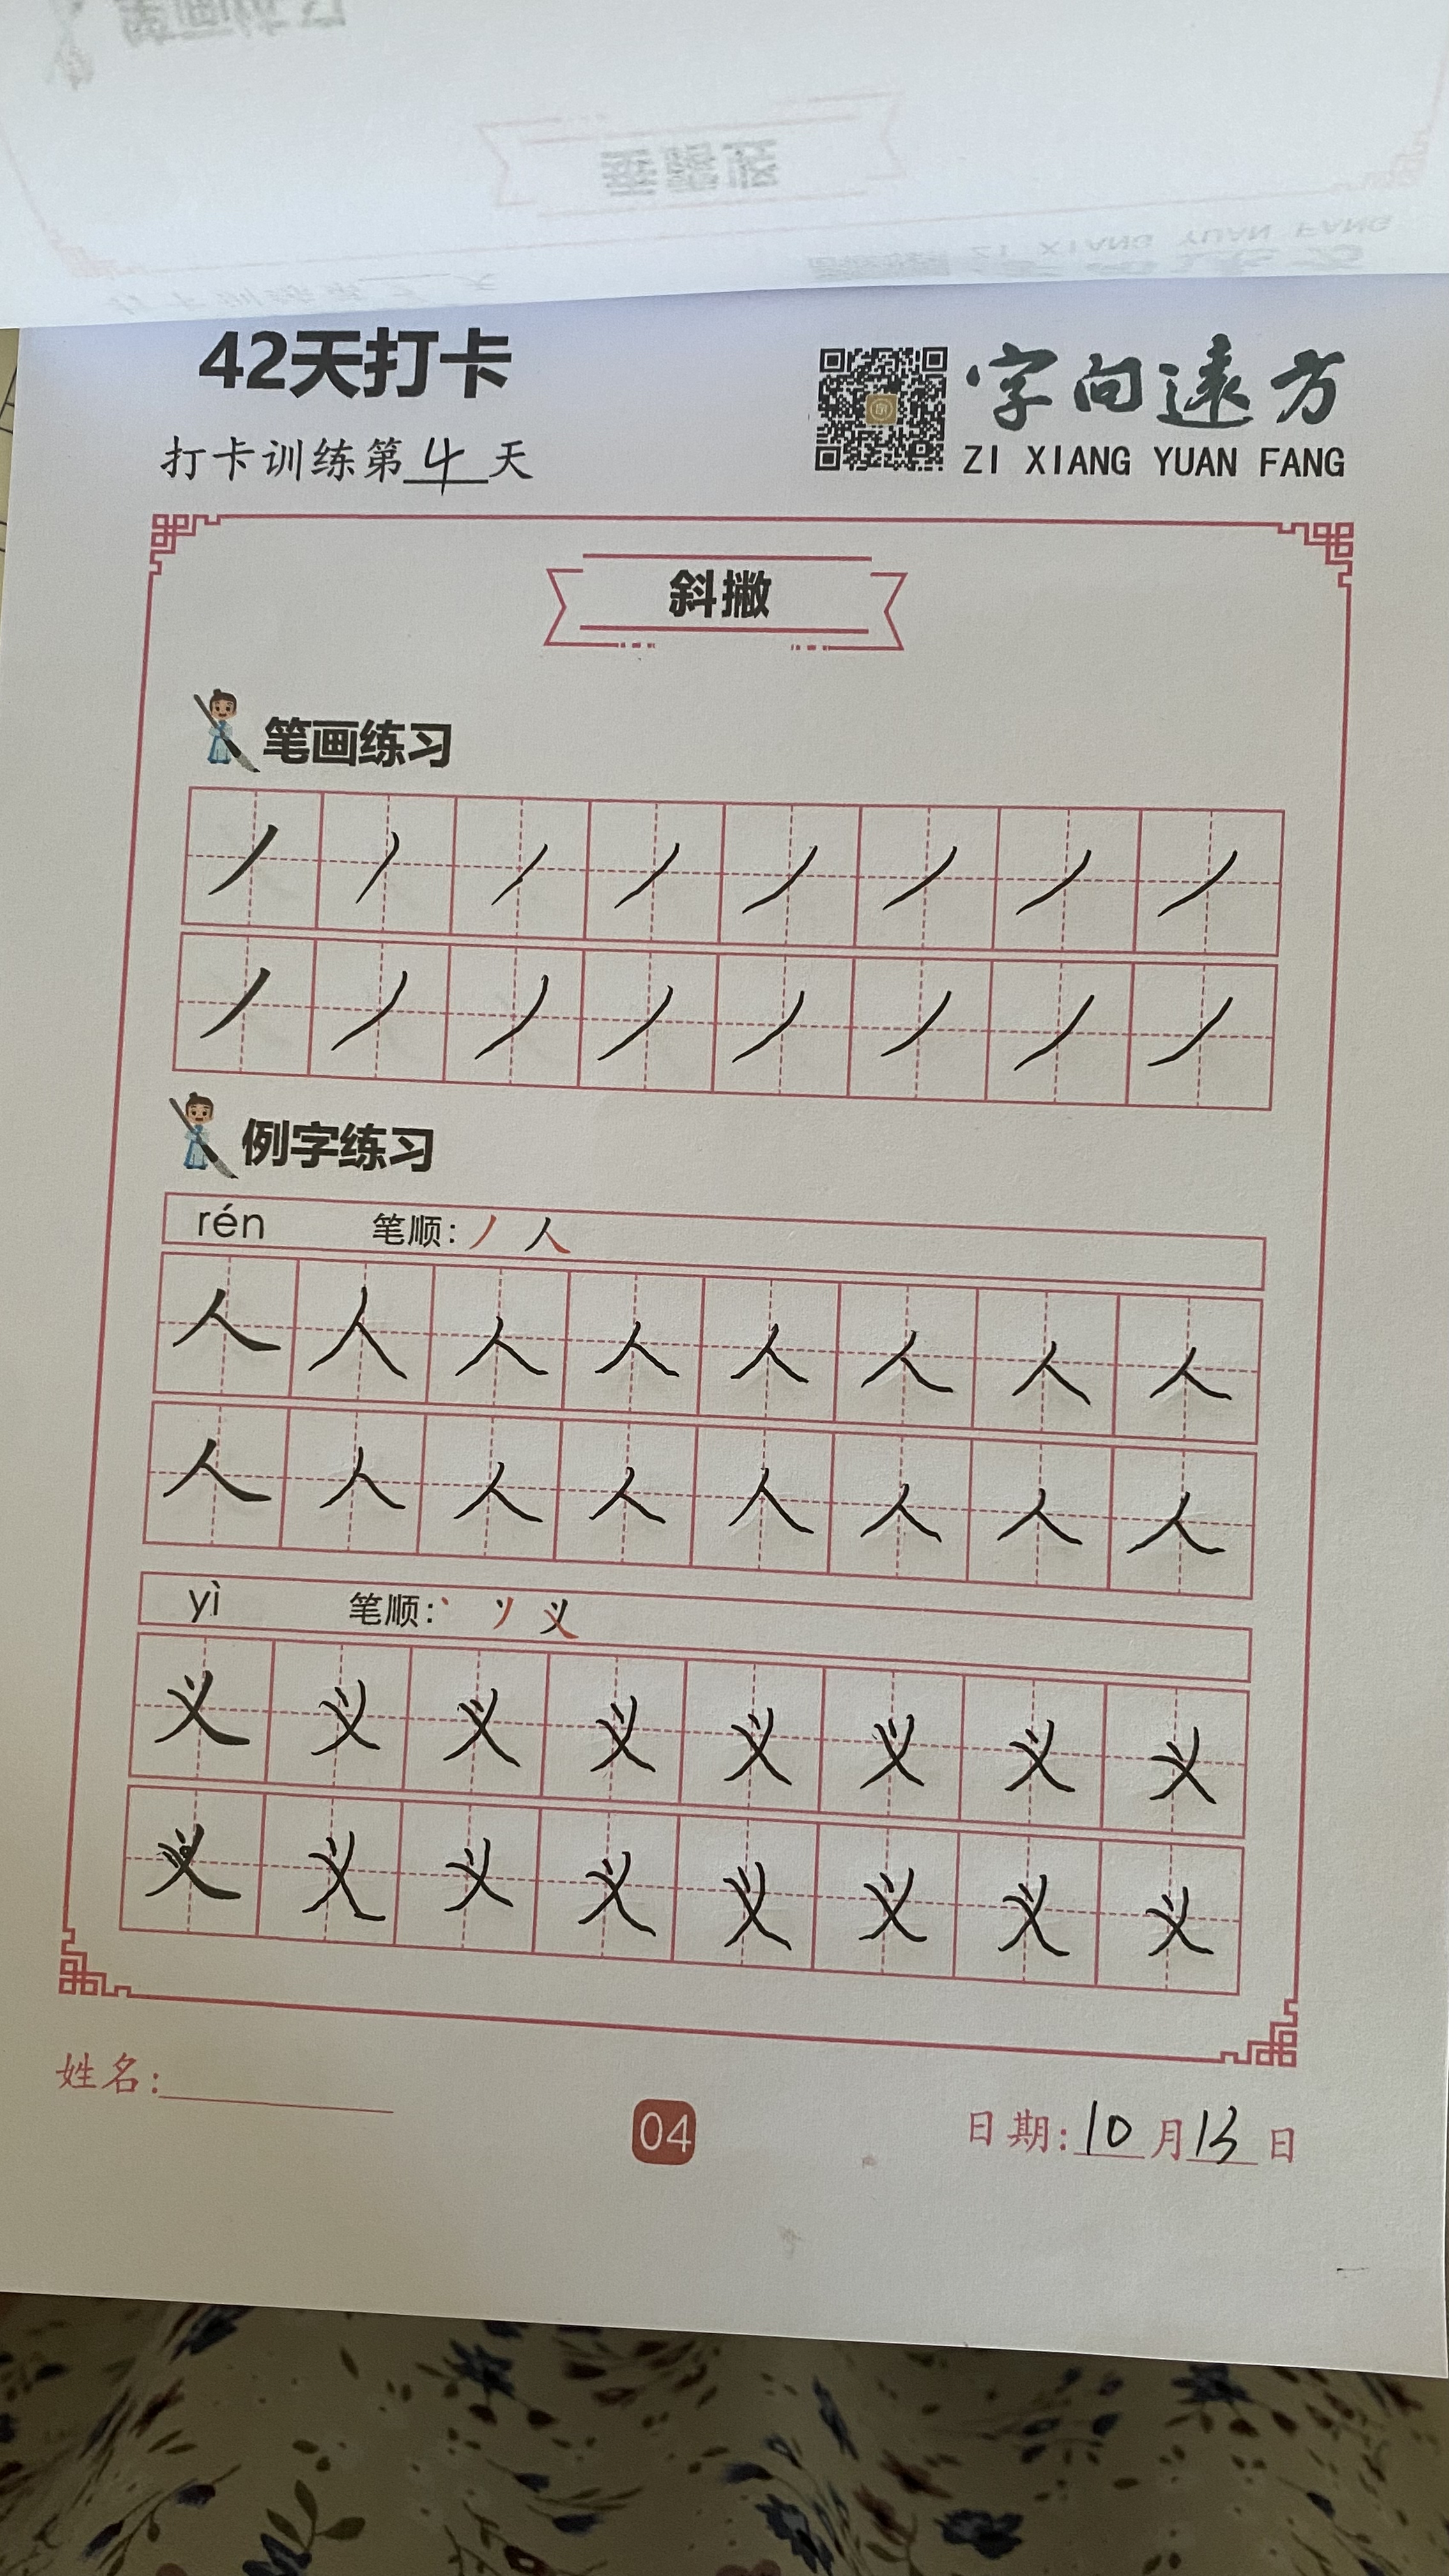 42天打卡
字向远方
打卡训练第4天
ZI XIANG YUAN FANG
斜撇
笔画练习
丿 丿 丿 丿 丿 丿 丿 丿
丿 丿 丿 丿 丿 丿 丿 丿
例字练习
rén 笔顺: 丿 人
人 人 人 人 人 人 人 人
人 人 人 人 人 人 人 人
yì 笔顺: 丶 丷 义
义 义 义 义 义 义 义 义
义 义 义 义 义 义 义 义
姓名:
04
日期: 10 月 13 日